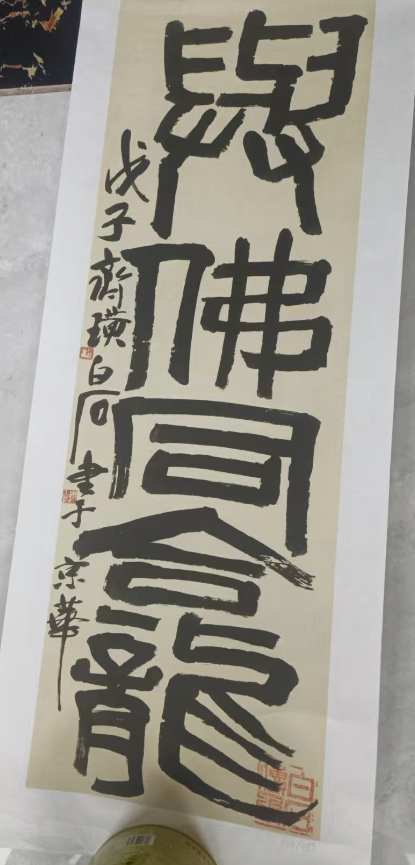 與佛同龕
戊子齊璜白石書于京華